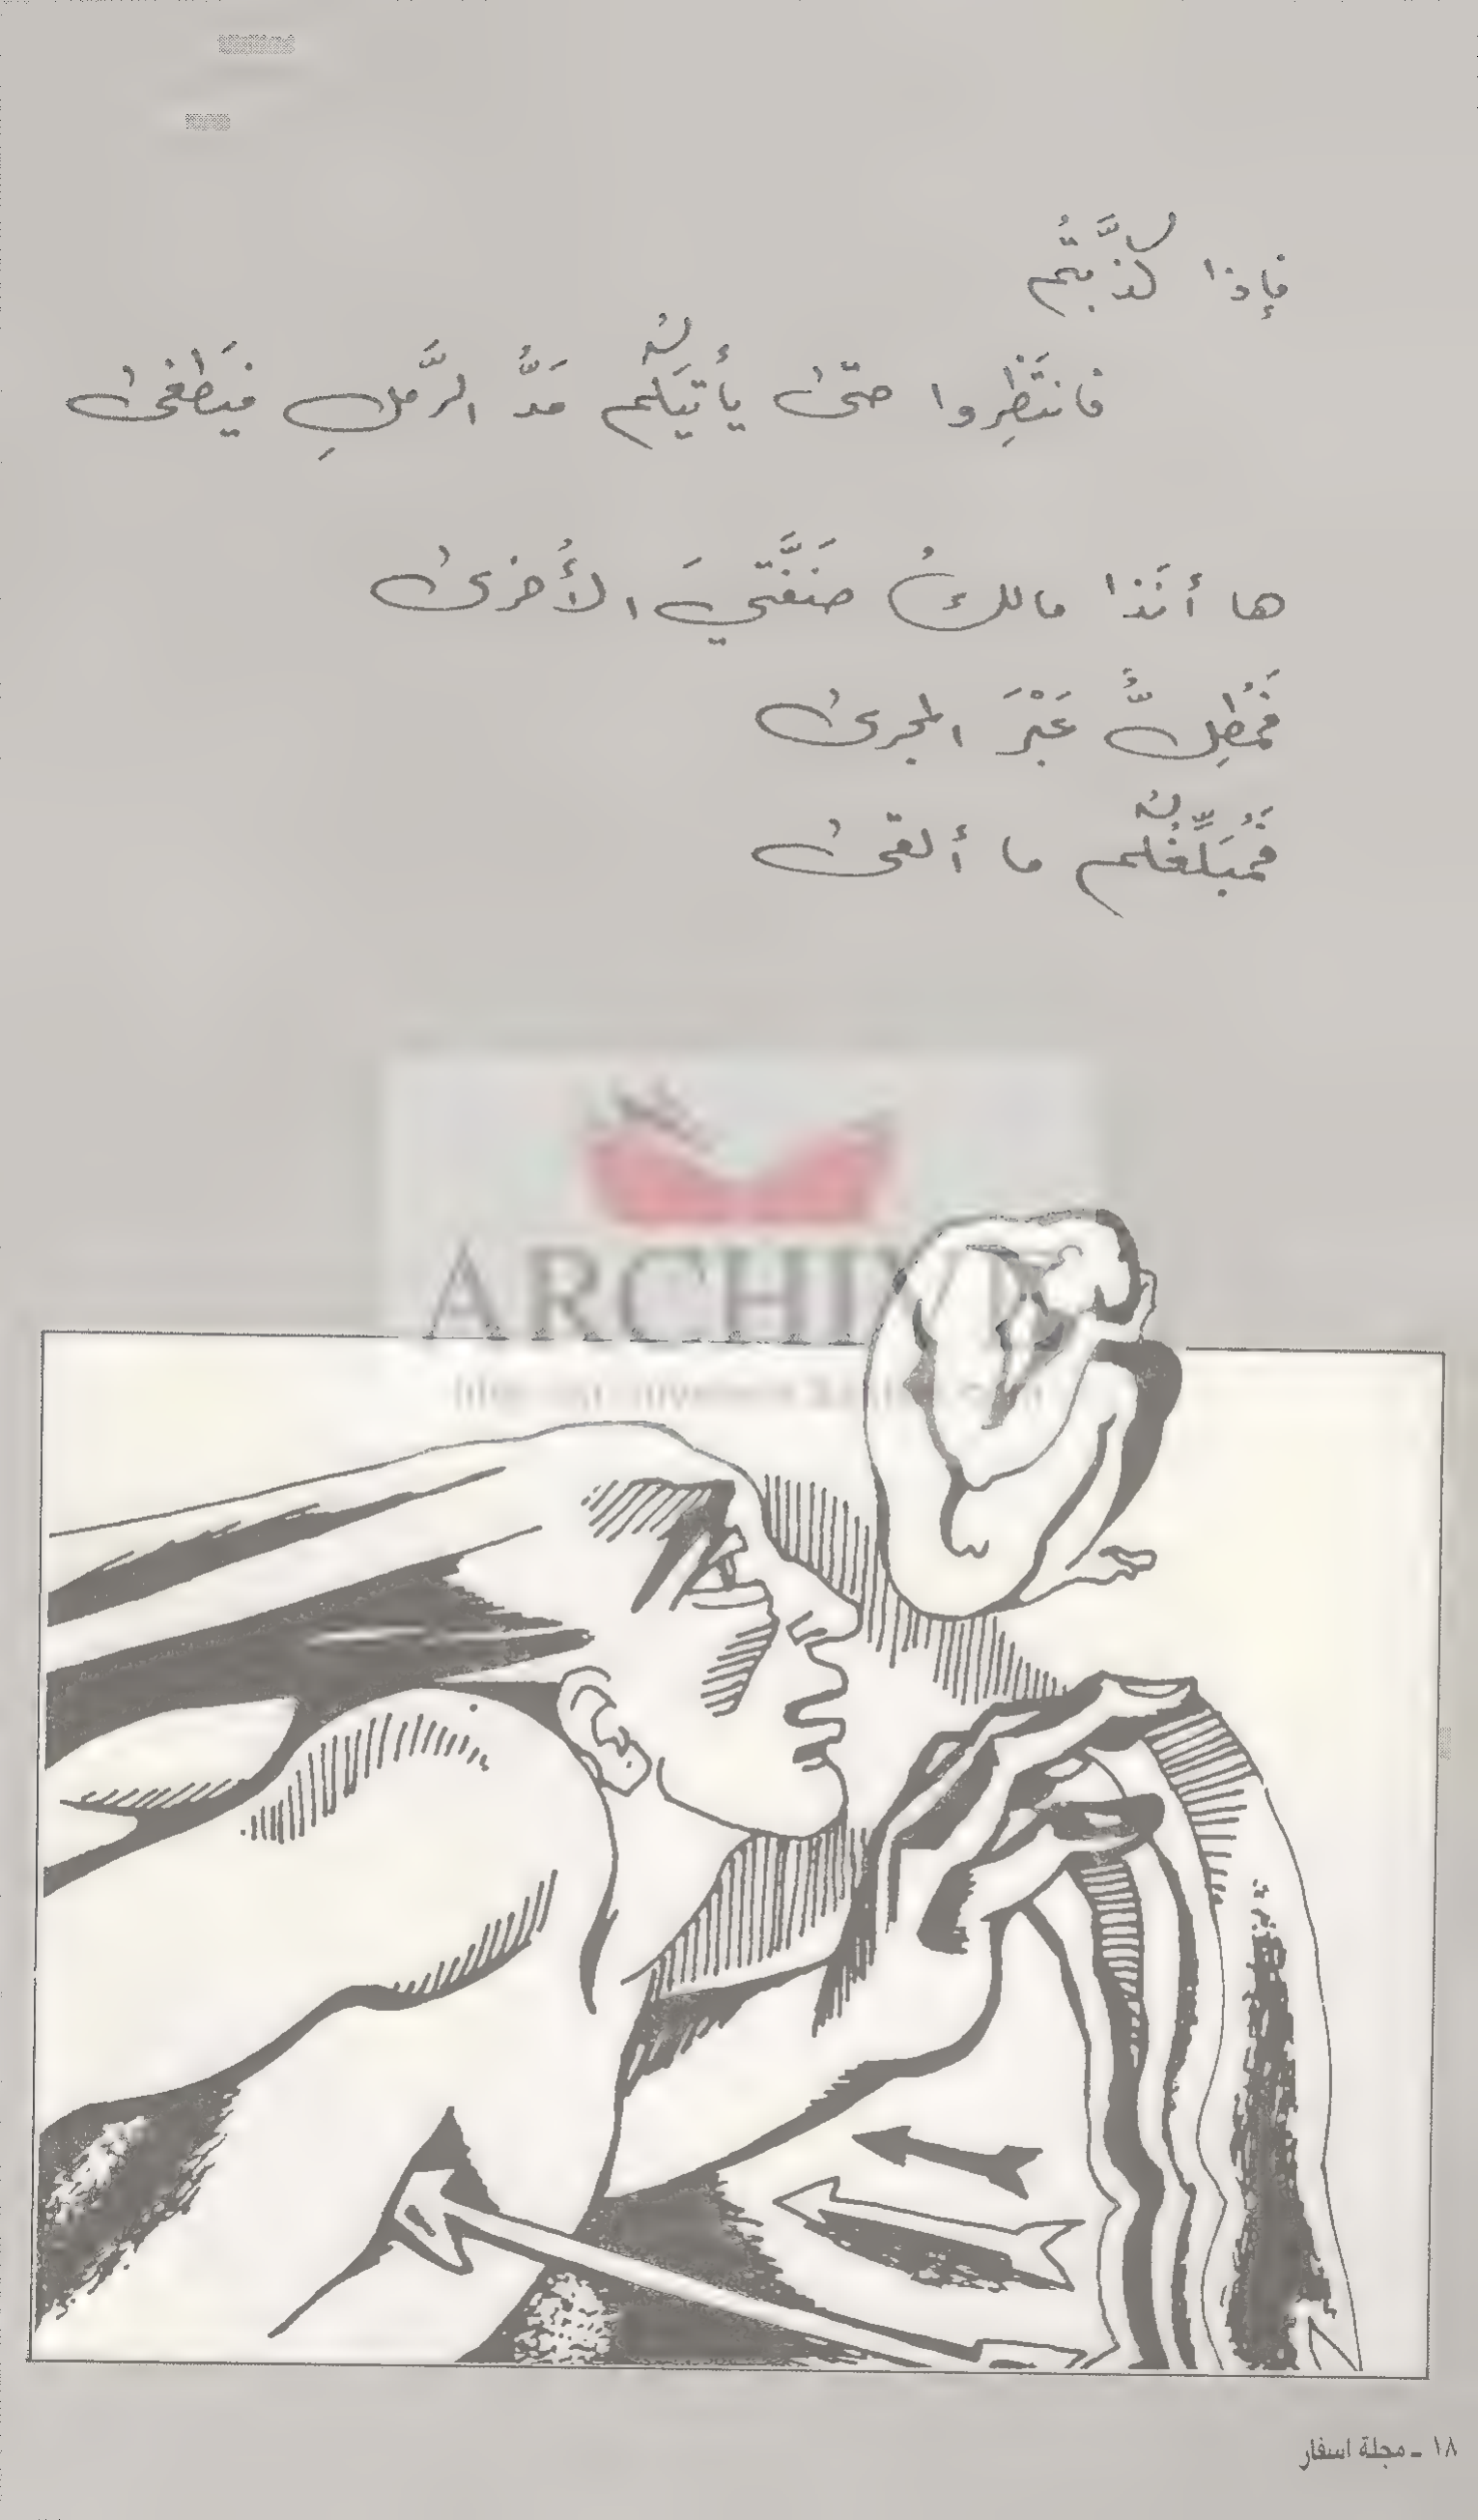 فإذا كذَّبتُم
فانتَظِروا حتّىٰ يأتيَكُم مَدُّ الرَّملِ فيَطغىٰ
ها أنَذا مالكُ ضَفَّتيَ الأُخرىٰ
فَمُطِلٌّ عَبْرَ المجرىٰ
فَمُبَلِّغُكُم ما ألقىٰ
ARCHIVE
١٨ - مجلة اسفار